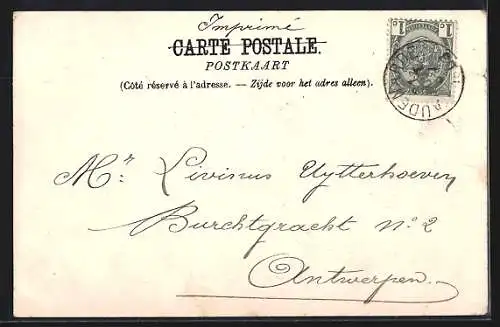 Imprimé
CARTE POSTALE.
POSTKAART
(Côté réservé à l'adresse. — Zijde voor het adres alleen).
1c 1c
AUDENAARDE
Mr. Livinus Uytterhoeven
Burchtgracht No 2
Antwerpen.